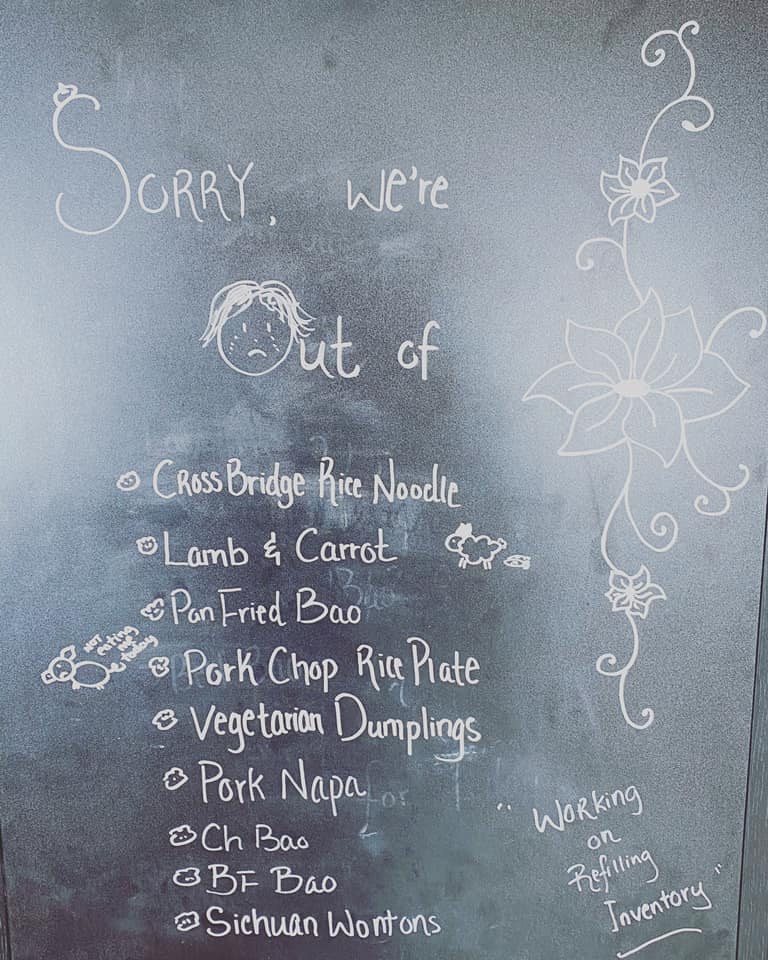 Sorry, we're
Out of
CrossBridge Rice Noodle
Lamb & Carrot
Pan Fried Bao
NOT
eating
me
today
Pork Chop Rice Plate
Vegetarian Dumplings
Pork Napa
Ch Bao
BF Bao
Sichuan Wontons
"Working
on
Refilling
Inventory"